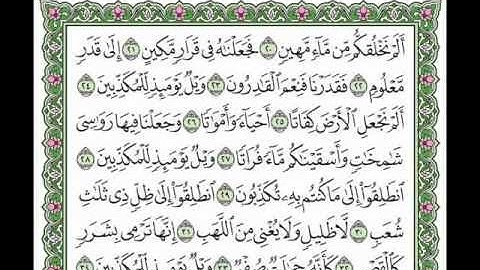 أَلَمْ نَخْلُقكُّم مِّن مَّآءٍ مَّهِينٍ ٢٠ فَجَعَلْنَٰهُ فِى قَرَارٍ مَّكِينٍ ٢١ إِلَىٰ قَدَرٍ
مَّعْلُومٍ ٢٢ فَقَدَرْنَا فَنِعْمَ ٱلْقَٰدِرُونَ ٢٣ وَيْلٌ يَوْمَئِذٍ لِّلْمُكَذِّبِينَ ٢٤
أَلَمْ نَجْعَلِ ٱلْأَرْضَ كِفَاتًا ٢٥ أَحْيَآءً وَأَمْوَٰتًا ٢٦ وَجَعَلْنَا فِيهَا رَوَٰسِىَ
شَٰمِخَٰتٍ وَأَسْقَيْنَٰكُم مَّآءً فُرَاتًا ٢٧ وَيْلٌ يَوْمَئِذٍ لِّلْمُكَذِّبِينَ ٢٨
ٱنطَلِقُوٓا۟ إِلَىٰ مَا كُنتُم بِهِۦ تُكَذِّبُونَ ٢٩ ٱنطَلِقُوٓا۟ إِلَىٰ ظِلٍّ ذِى ثَلَٰثِ
شُعَبٍ ٣٠ لَّا ظَلِيلٍ وَلَا يُغْنِى مِنَ ٱللَّهَبِ ٣١ إِنَّهَا تَرْمِى بِشَرَرٍ
كَٱلْقَصْرِ ٣٢ كَأَنَّهُۥ جِمَٰلَتٌ صُفْرٌ ٣٣ وَيْلٌ يَوْمَئِذٍ لِّلْمُكَذِّبِينَ ٣٤